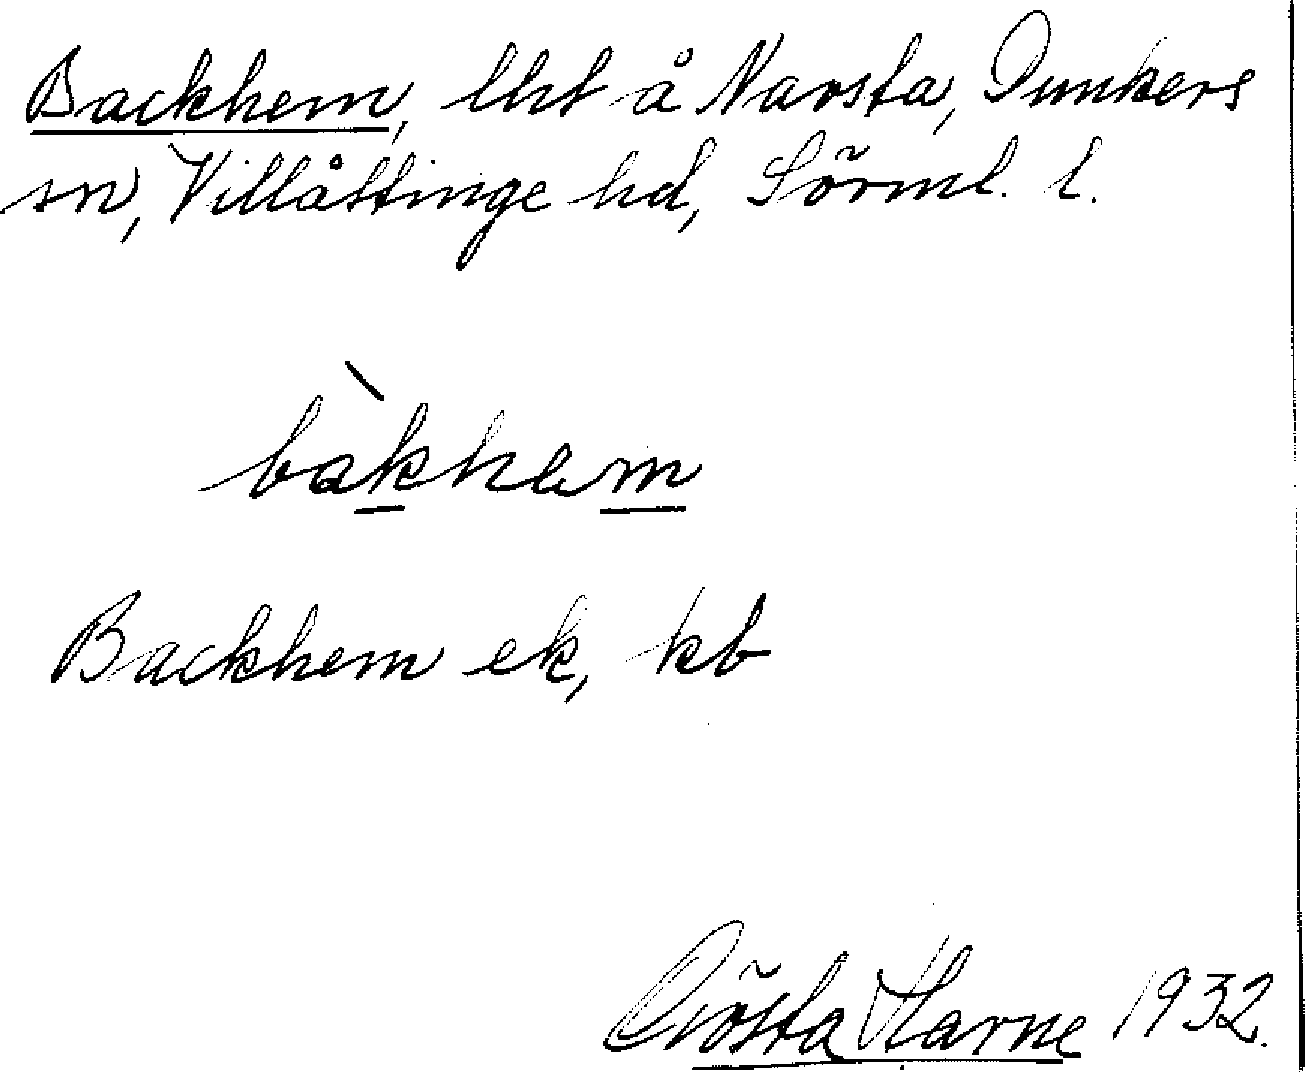 Backhem, lht å Narsta, Dunkers
sn, Villåttinge hd, Sörml. l.
bàkhem
Backhem ek, kb
Gösta Harne 1932.